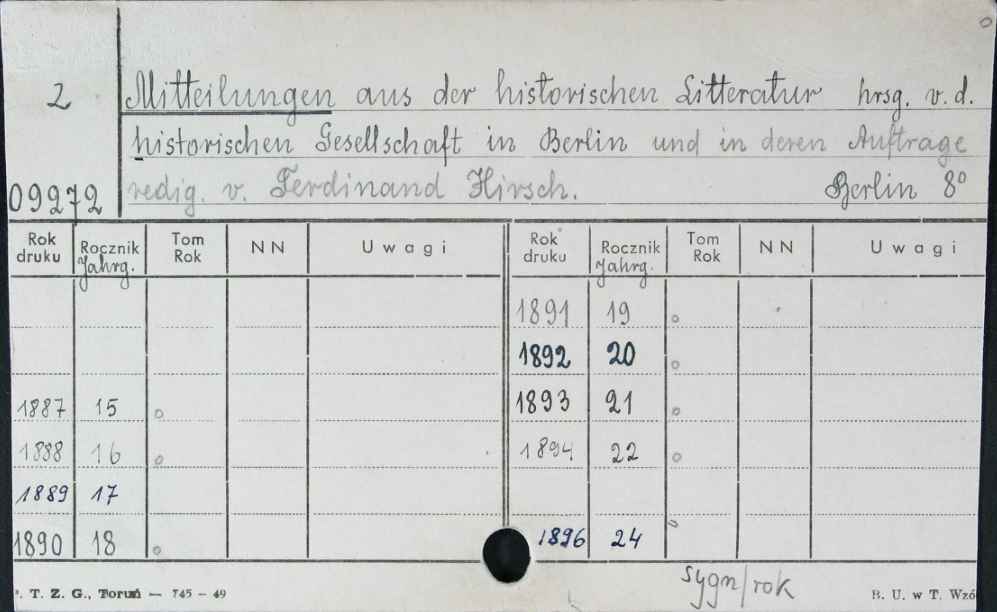 2
Mitteilungen aus der historischen Litteratur hrsg. v. d.
historischen Gesellschaft in Berlin und in deren Auftrage
09272 redig. v. Ferdinand Hirsch. Berlin 8°
Rok druku Rocznik Jahrg. Tom Rok NN Uwagi Rok druku Rocznik Jahrg. Tom Rok NN Uwagi
1891 19
1892 20
1887 15 1893 21
1888 16 1894 22
1889 17
1890 18 1896 24
sygn/rok
T. Z. G., Toruń — 745 – 49 B. U. w T. Wzó